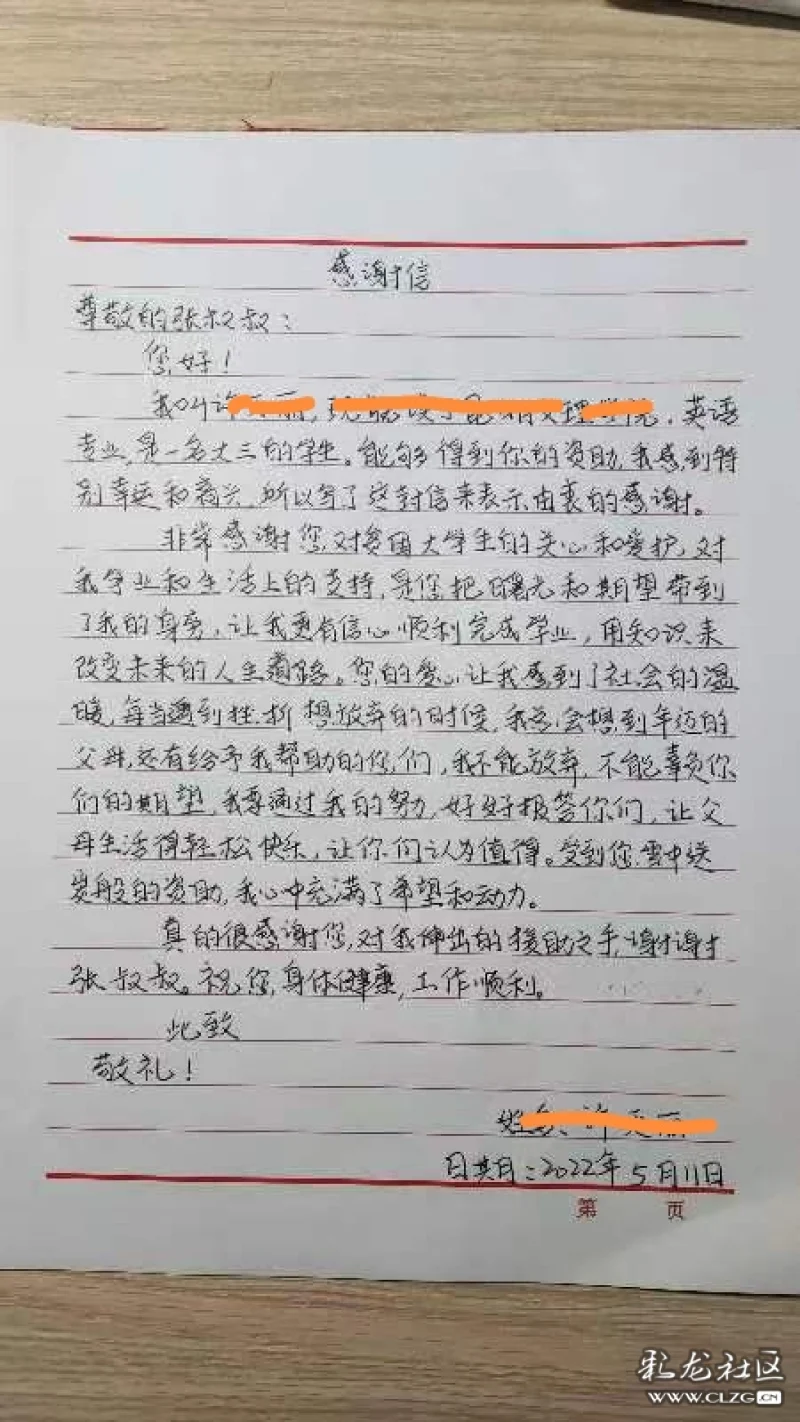 感谢信
尊敬的张叔叔：
您好！
我叫许，理，英语
专业，是一名大三的学生。能够得到你的资助，我感到特
别幸运和高兴，所以写了这封信来表示由衷的感谢。
非常感谢您，对贫困大学生的关心和爱护，对
我学业和生活上的支持，是您把曙光和期望带到
了我的身旁，让我更有信心顺利完成学业，用知识来
改变未来的人生道路。您的爱心让我感到了社会的温
暖，每当遇到挫折想放弃的时候，我总会想到年迈的
父母，还有给予我帮助的您们，我不能放弃，不能辜负你
们的期望，我要通过我的努力，好好报答你们，让父
母生活得轻松快乐，让你们认为值得。受到您雪中送
炭般的资助，我心中充满了希望和动力。
真的很感谢您，对我伸出的援助之手，谢谢
张叔叔。祝您，身体健康，工作顺利。
此致
敬礼！
日期：2022年5月11日
第 页
彩龙社区
WWW.CLZG.CN